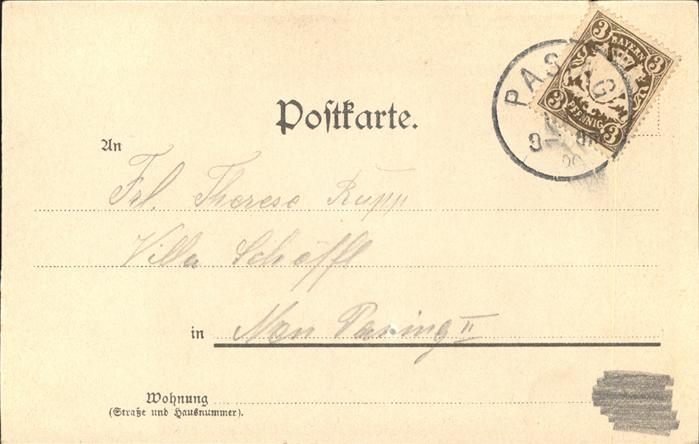 3 BAYERN 3
3 PFENNIG 3
PAS G
Postkarte.
An
Frl. Therese Rupp
Villa Schöffl
in Neu Pasing II
Wohnung
(Straße und Hausnummer).